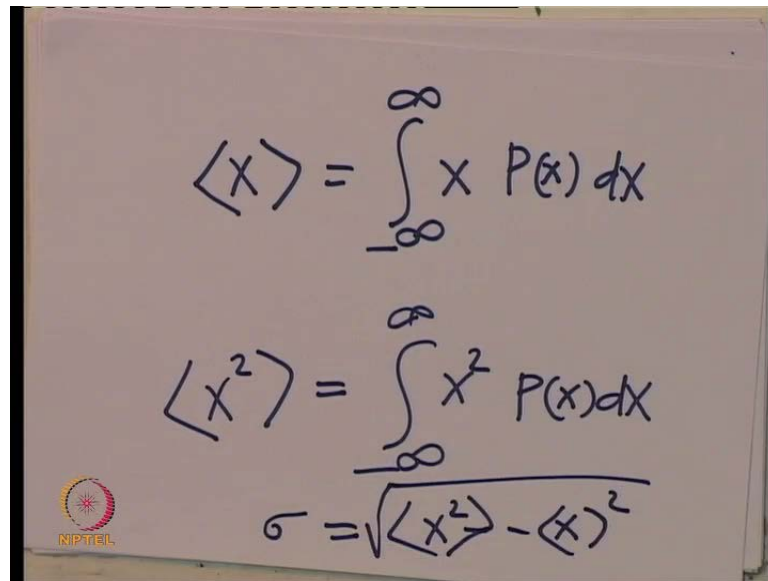 ⟨x⟩ = ∫_{-∞}^{∞} x P(x) dx
⟨x²⟩ = ∫_{-∞}^{∞} x² P(x) dx
σ = √(⟨x²⟩ - ⟨x⟩²)
NPTEL